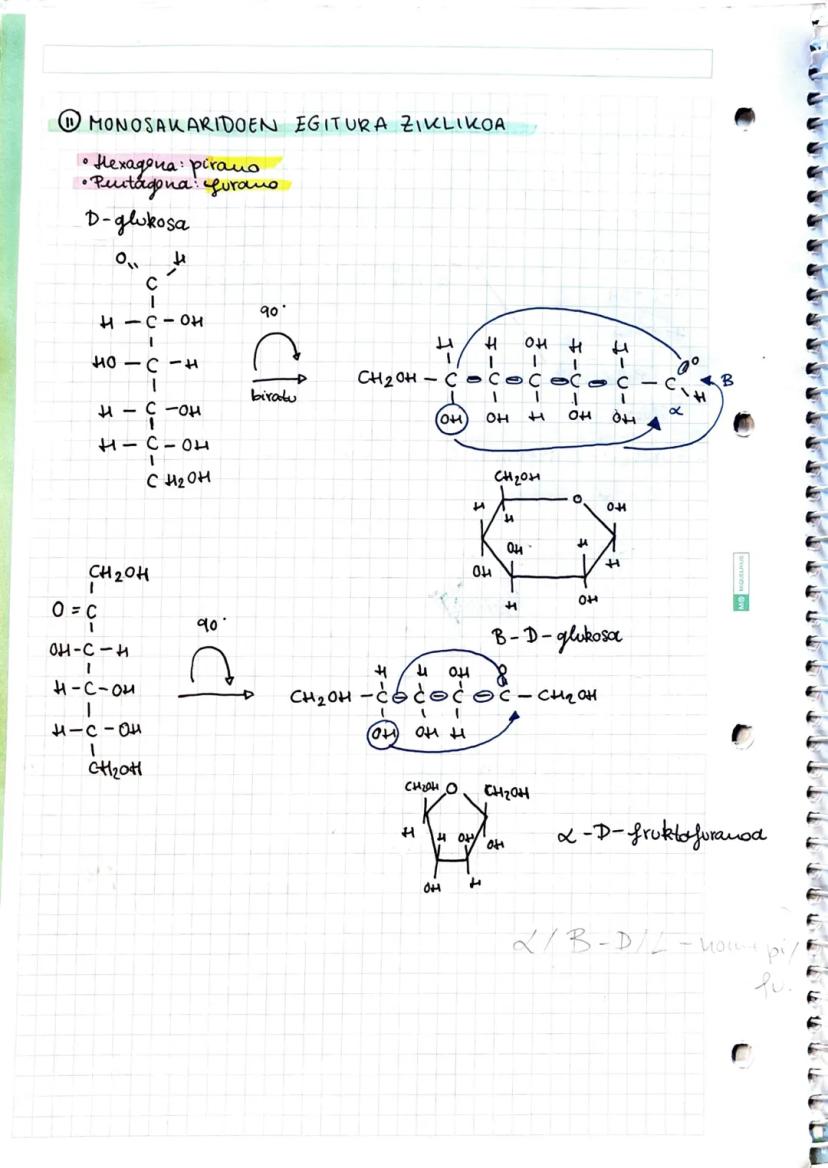 ⑪ MONOSAKARIDOEN EGITURA ZIKLIKOA
• Hexagona: pirano
• Pentagona: furano
D-glukosa
O H
C
H - C - OH
HO - C - H
H - C - OH
H - C - OH
CH2OH
90°
biratu
H H OH H H O
CH2OH - C - C - C - C - C - C H B
OH OH H OH OH α
CH2OH
H O OH
H
OH H
OH H
H OH
B-D-glukosa
CH2OH
O = C
OH - C - H
H - C - OH
H - C - OH
CH2OH
90°
H H OH O
CH2OH - C - C - C - C - CH2OH
OH OH H
CH2OH O CH2OH
H H OH OH
OH H
α-D-fruktofuranoa
α/B-D/L- pi/
fu.
MIQUELRIUS